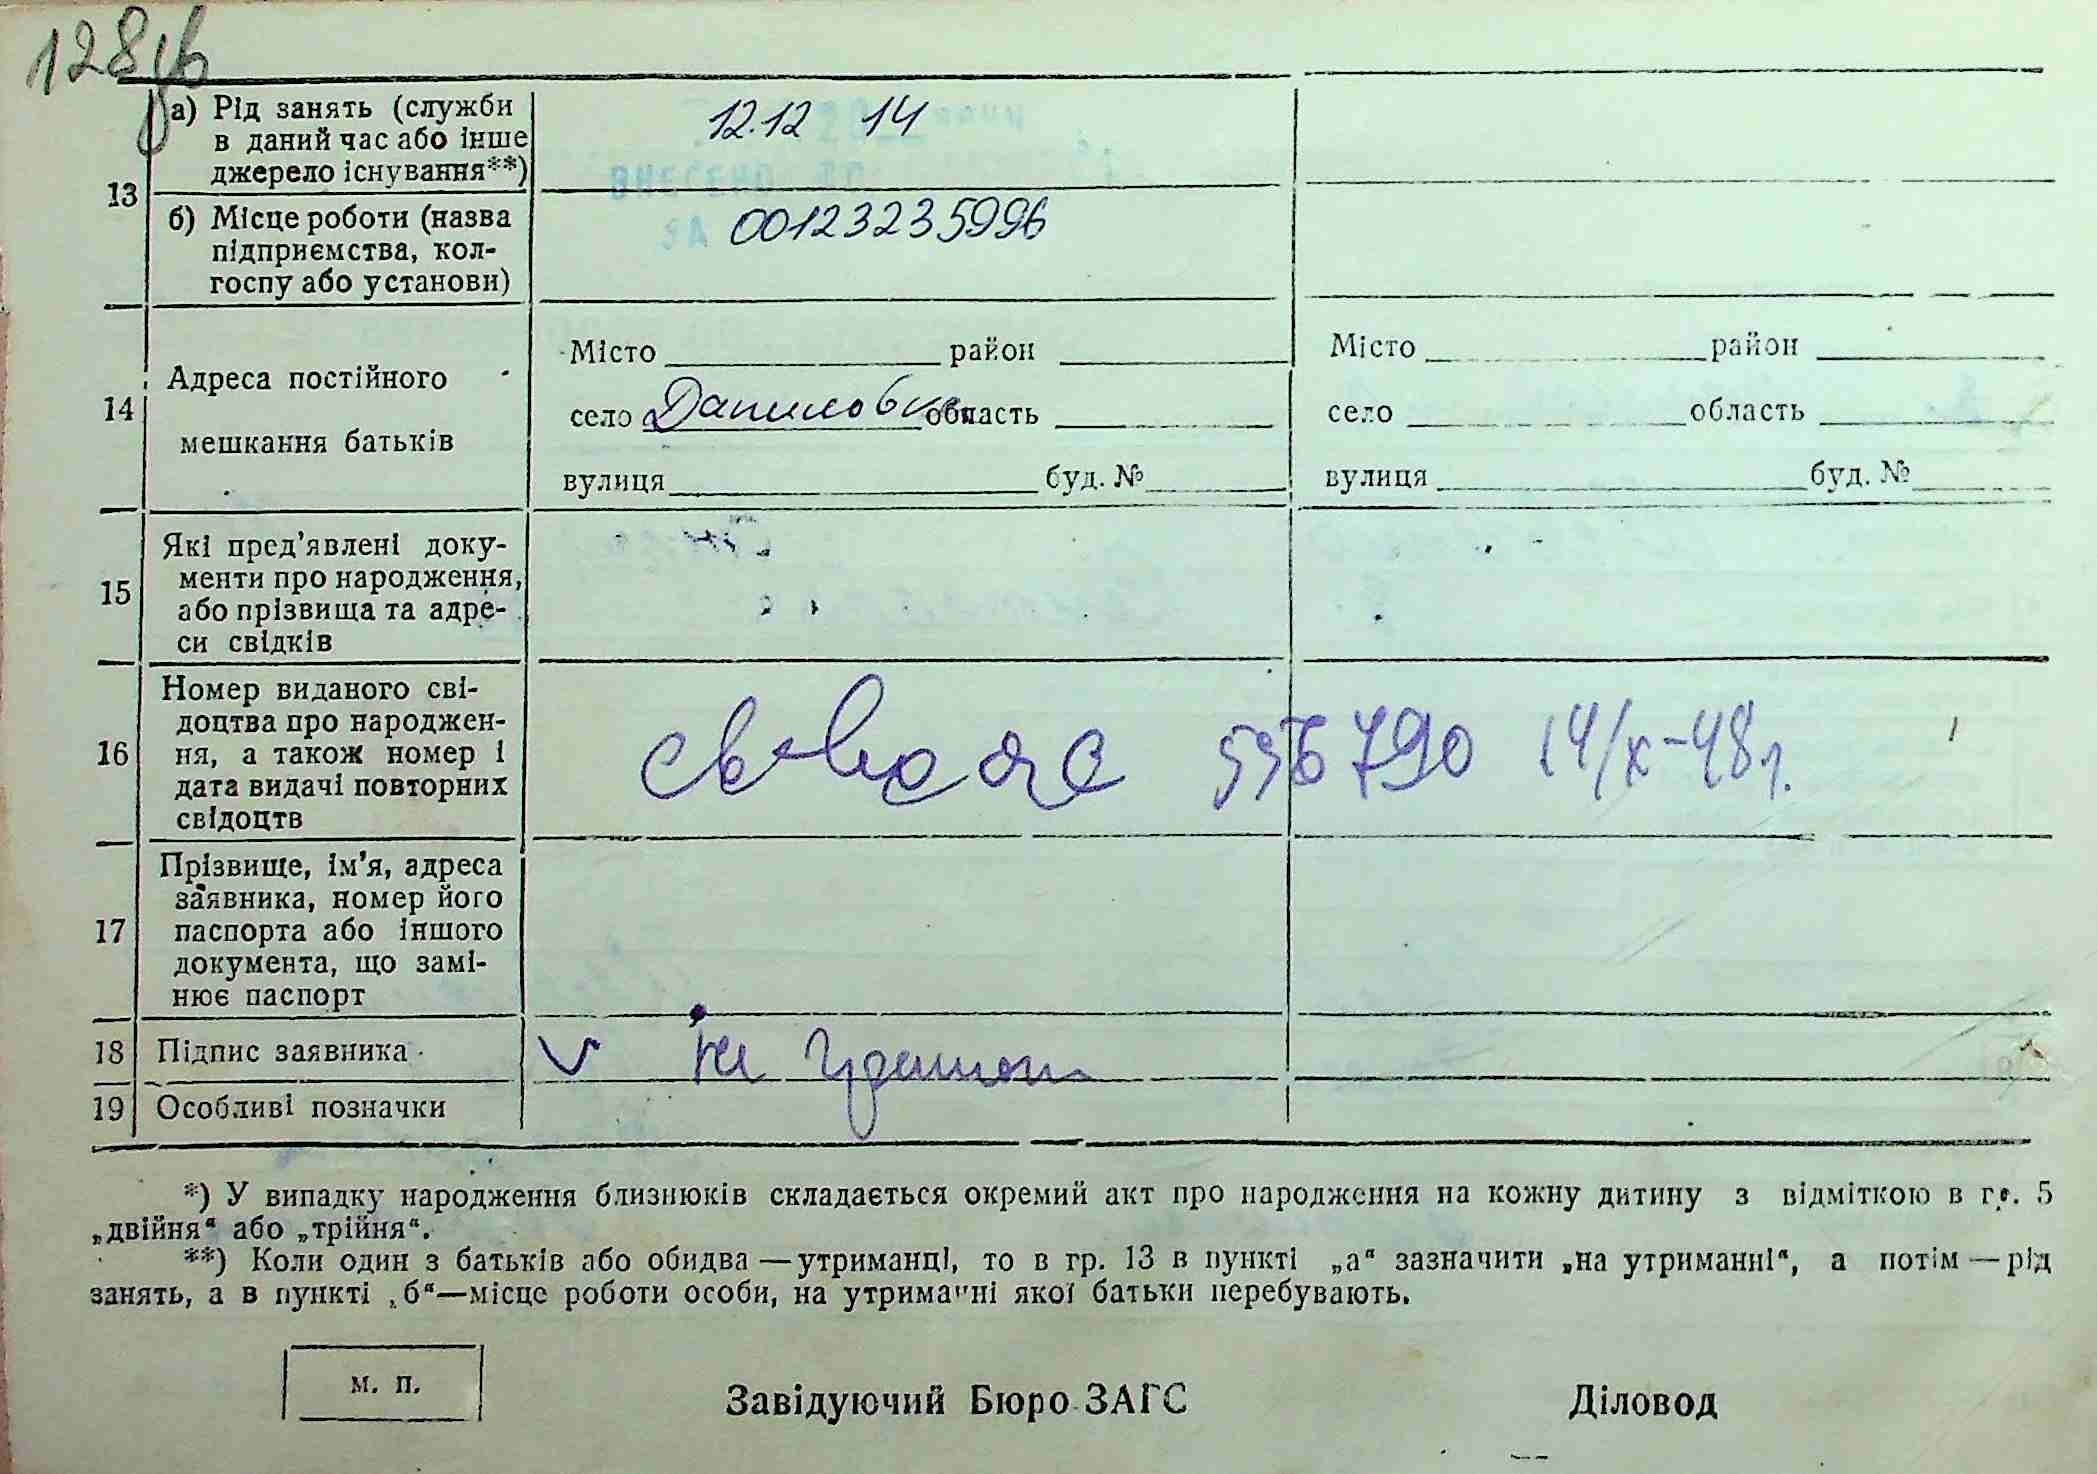 128
13
а) Рід занять (служби
в даний час або інше
джерело існування**)
12.12 14
ВНЕСЕНО ДО
б) Місце роботи (назва
підприємства, кол-
госпу або установи)
00123235996
14
Адреса постійного
мешкання батьків
Місто район
село Даниловка область
вулиця буд. №
Місто район
село область
вулиця буд. №
15
Які пред’явлені доку-
менти про народження,
або прізвища та адре-
си свідків
16
Номер виданого сві-
доцтва про народжен-
ня, а також номер і
дата видачі повторних
свідоцтв
556790 14/х-48г.
17
Прізвище, ім’я, адреса
заявника, номер його
паспорта або іншого
документа, що замі-
нює паспорт
18 Підпис заявника
19 Особливі позначки
*) У випадку народження близнюків складається окремий акт про народження на кожну дитину з відміткою в гр. 5
„двійня“ або „трійня“.
**) Коли один з батьків або обидва—утриманці, то в гр. 13 в пункті „а“ зазначити „на утриманні“, а потім—рід
занять, а в пункті „б“—місце роботи особи, на утриманні якої батьки перебувають.
м. п.
Завідуючий Бюро ЗАГС
Діловод